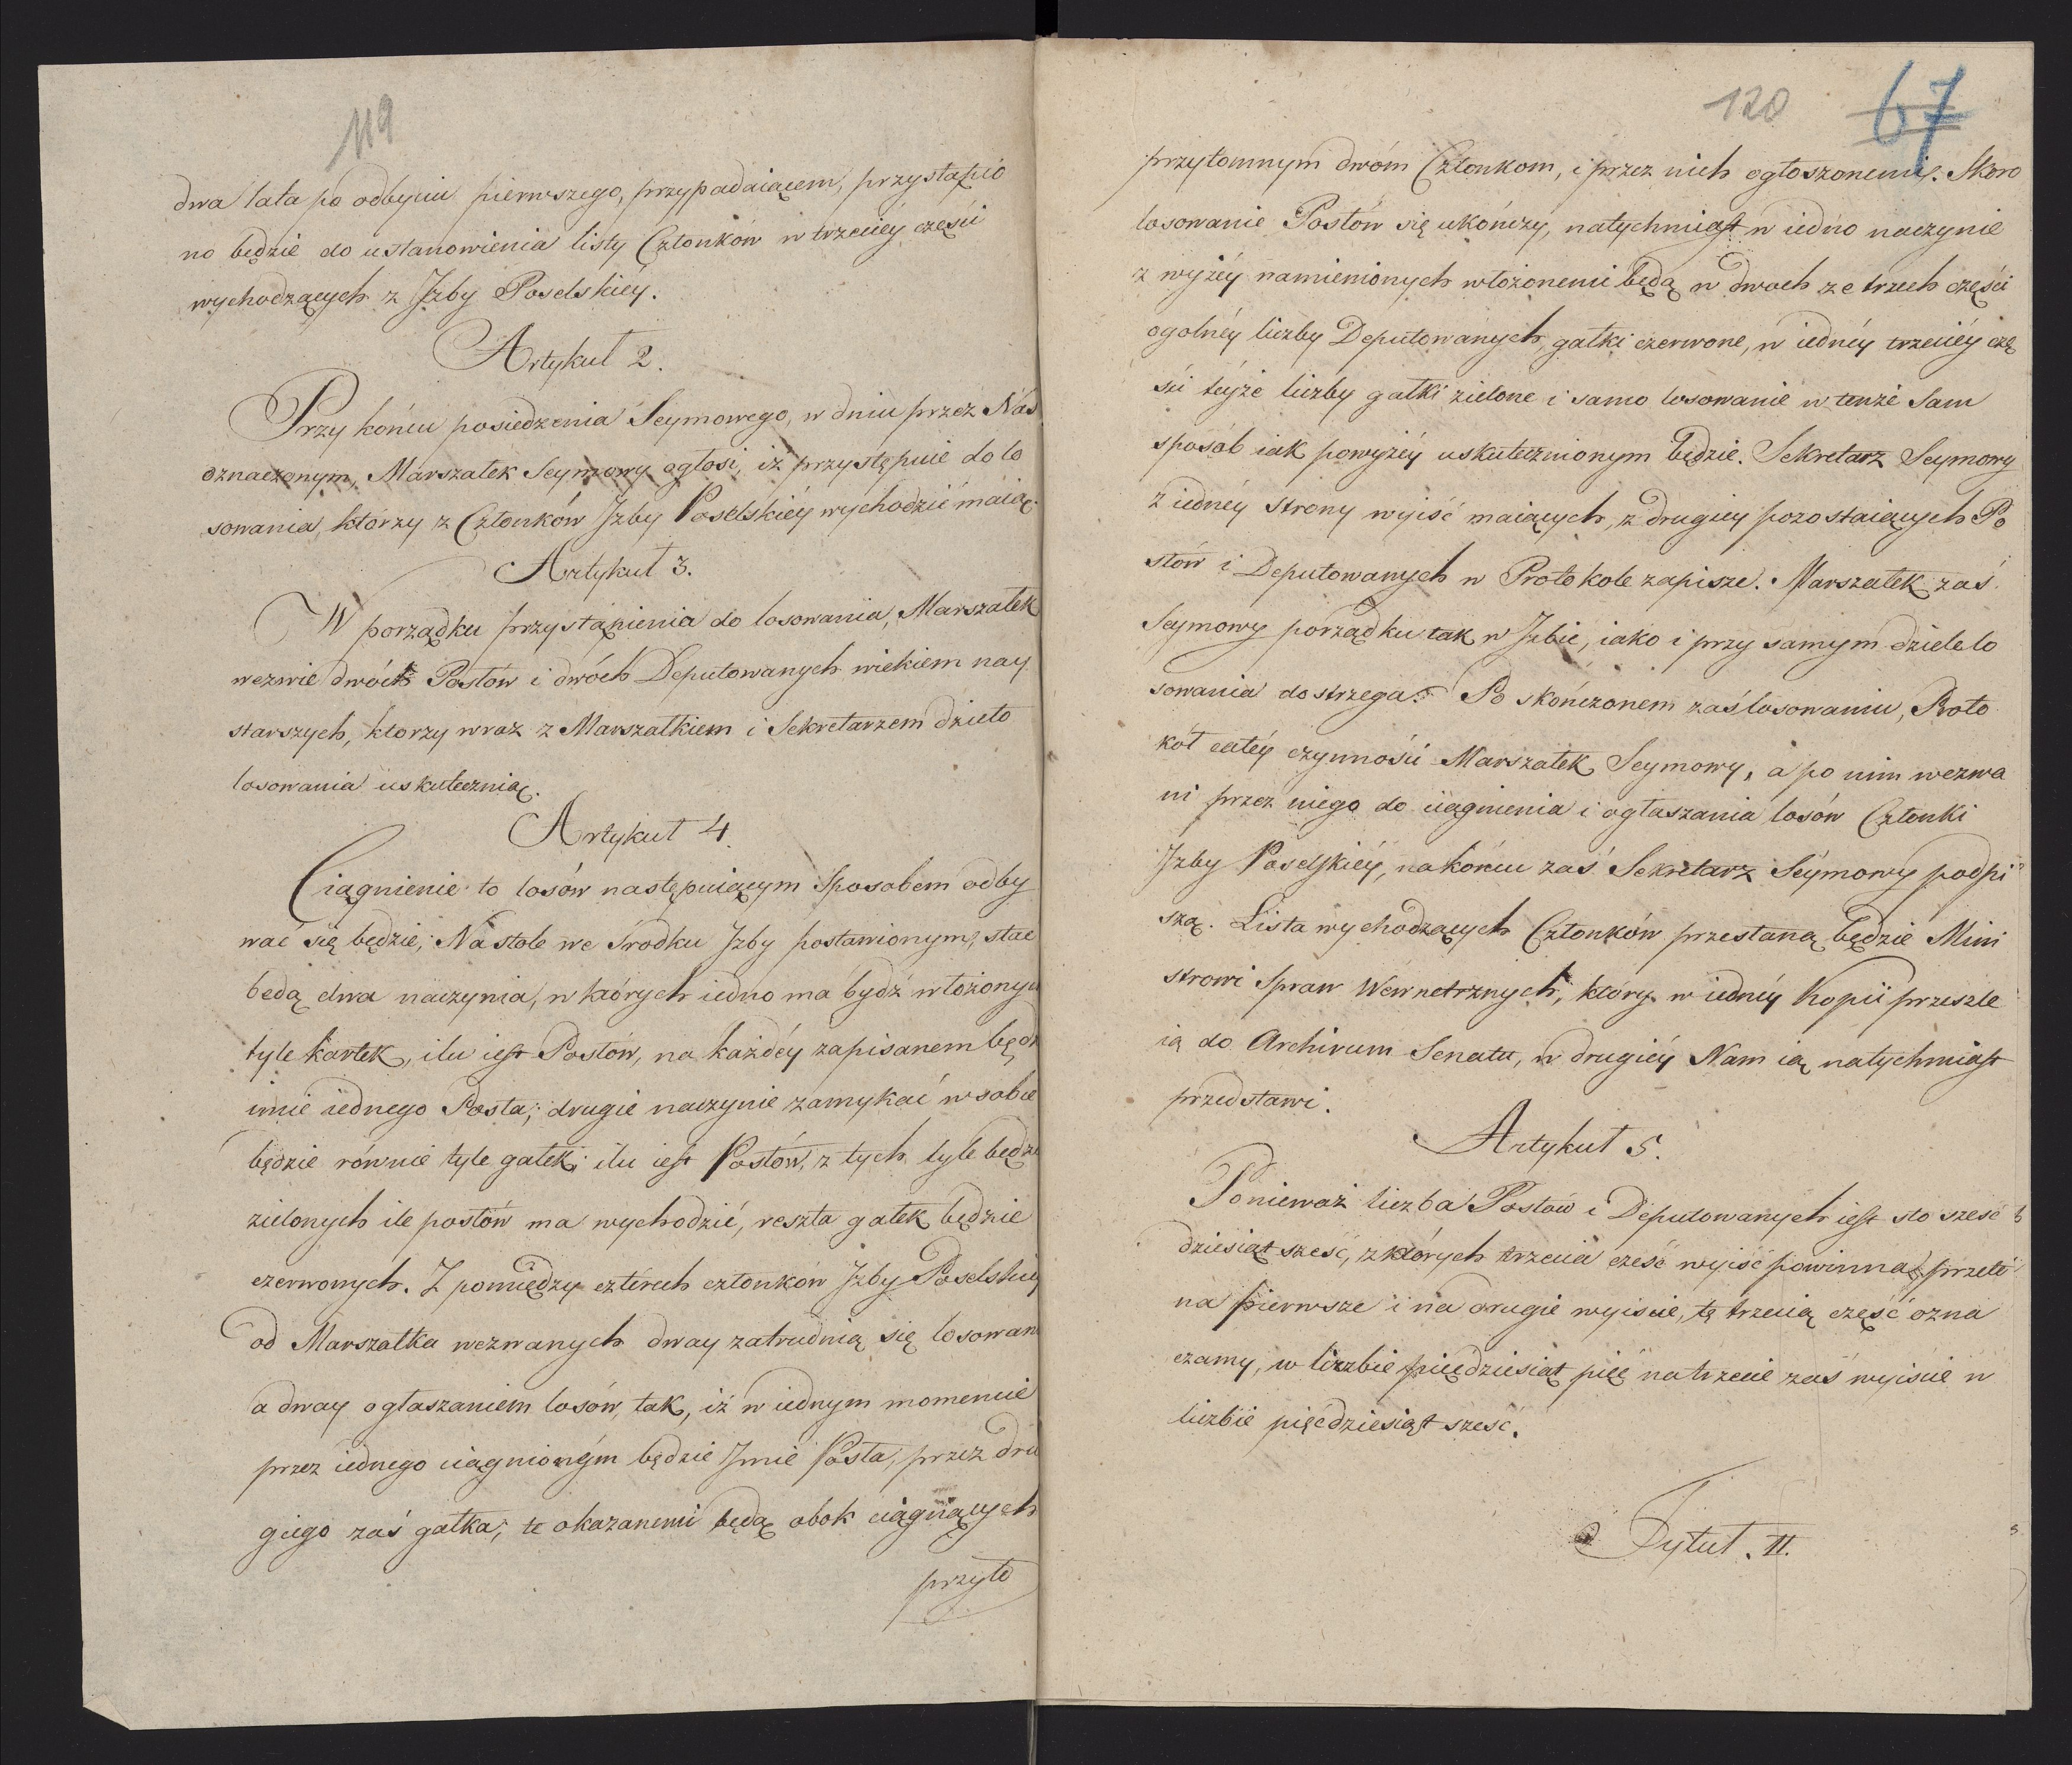 119
dwa lata po odbyciu pierwszego, przypadaiącem, przystąpio
no będzie do ustanowienia listy Członków w trzeciéy części
wychodzących z Jzby Poselskiéy.
Artykuł 2.
Przy końcu posiedzenia Seymowego, w dniu przez Nas
oznaczonym, Marszałek Seymowy ogłosi, iż przystępuie do lo
sowania, którzy z Członków Jzby Poselskiéy wychodzić maią.
Artykuł 3.
W porządku przystąpienia do losowania, Marszałek
wezwie dwóch Posłów i dwóch Deputowanych wiekiem nay
starszych, ktorzy wraz z Marszałkiem i Sekretarzem dzieło
losowania uskutecznią.
Artykuł 4.
Ciągnienie to losów następuiącym sposobem odby
wać się będzie; Na stole we środku Jzby postawionym, stać
będą dwa naczynia, w których iedno ma bydź włożonych
tyle kartek, ilu iest Posłów, na każdéy zapisanem będz
imie iednego Posła; drugie naczynie zamykać w sobie
będzie równie tyle gałek, ilu iest Posłów, z tych tyle będzie
zielonych ile posłów ma wychodzić, reszta gałek będzie
czerwonych. Z pomiędzy czterech członków Jzby Poselskiéy
od Marszałka wezwanych dway zatrudnią się losowan
a dway ogłaszaniem losów, tak, iż w iednym momencie
przez iednego ciągnionym będzie Jmie Posła, przez dru
giego zaś gałka; te okazanemi będą obok ciągnących
przyto
120
67
przytomnym dwóm Członkom, i przez nich ogłoszonemi. Skoro
losowanie Posłów się ukończy, natychmiast w iedno naczynie
z wyżéy namienionych włożonemi będą w dwoch ze trzech części
ogolnéy liczby Deputowanych, gałki czerwone, w iednéy trzeciéy czę
ści téyże liczby gałki zielone i samo losowanie w tenże Sam
sposób iak powyżéy uskutecznionym będzie. Sekretarz Seymowy
z iednéy strony wyiść maiących, z drugiey pozostaiących Po
słów i Deputowanych w Protokole zapisze. Marszałek zaś
Seymowy porządku tak w Jzbie, iako i przy samym dziele lo
sowania dostrzega. Po skończonem zaś losowaniu, Proto
kół całéy czynności Marszałek Seymowy, a po nim wezwa
ni przez niego do ciągnienia i ogłaszania losów Członki
Jzby Poselskiéy, na końcu zaś Sekretarz Séymowy podpi
szą. Lista wychodzących Członków przesłaną będzie Mini
strowi Spraw Wewnetrznych, który w iednéy Kopii przeszle
ią do Archivum Senatu, w drugiéy Nam ią natychmiast
przedstawi.
Artykuł 5.
Ponieważ liczba Posłow i Deputowanych iest sto szesć
dziesiąt sześć, z których trzecia cześć wyiść powinna, przeto
na pierwsze i na drugie wyiscie, tę trzecią część ozna
czamy, w liczbie pięćdziesiąt pięć na trzecie zaś wyiście w
liczbie pięćdziesiąt sześć.
Tytuł. II.